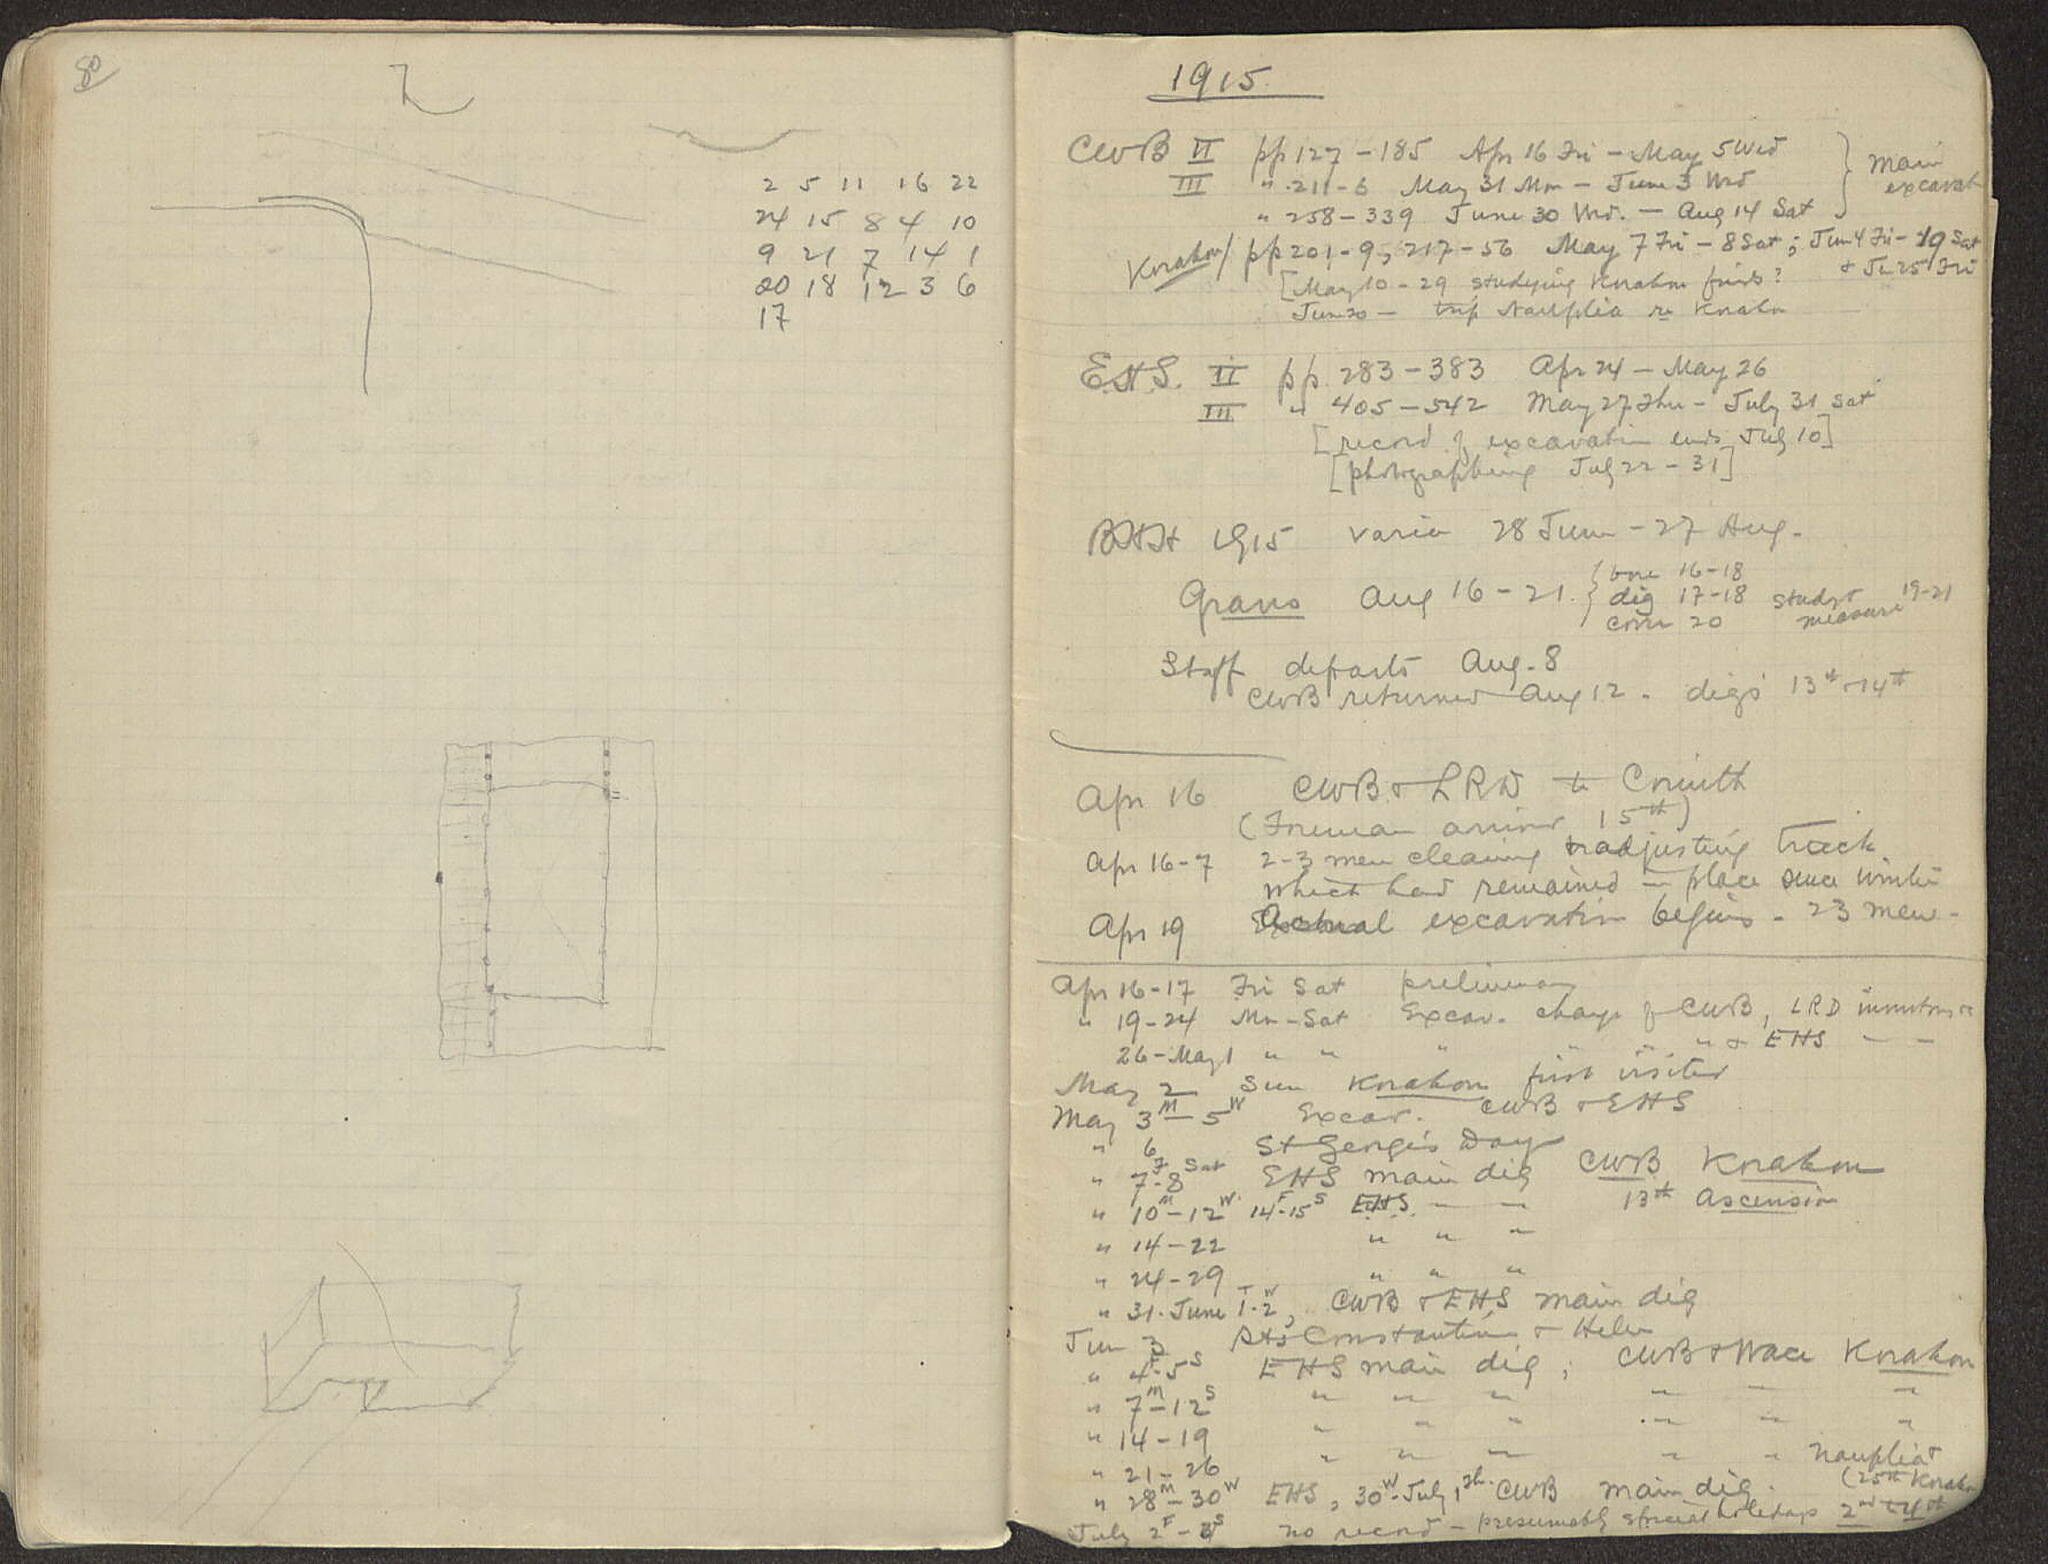 80
2 5 11 16 22
24 15 8 4 10
9 21 7 14 1
20 18 12 3 6
17
1915
CWB II pp 127-185 Apr 16 Fri - May 5 Wed
III " 211-6 May 31 Mon - June 3 Wed
" 258-339 June 30 Wed. - Aug 14 Sat
main
excavat
Korakou pp 201-9, 217-56 May 7 Fri - 8 Sat; Jun 4 Fri - 19 Sat
+ Ju 25 Fri
[May 10-29 studying Korakou finds?
June 20 - trip Nauplia re Korakou
E.H.S. II pp. 283-383 Apr 24 - May 26
III " 405-542 May 27 Thu - July 31 Sat
[record of excavation ends July 10]
[photographing July 22-31]
BHH 1915 varia 28 June - 27 Aug.
Graves Aug 16-21.
16-18
dig 17-18 study + 19-21
cover 20 measure
Staff departs Aug. 8
CWB returned Aug 12 - digs 13th + 14th
Apr 16 CWB + LRD to Corinth
(Foreman arrived 15th)
Apr 16-7 2-3 men cleaning + adjusting track
which had remained in place since winter
Apr 19 Actual excavation begins - 23 men -
Apr 16-17 Fri Sat preliminary
" 19-24 Mon-Sat Excav. charge of CWB, LRD
26-May 1 " " " " " " + EHS - -
May 2 Sun Korakou first visited
May 3 M - 5 W Excav. CWB + EHS
" 6 St George's Day
" 7-8 Sat EHS main dig CWB Korakou
" 10 M - 12 W. 14 F - 15 S EHS - - 13th Ascension
" 14-22 " " "
" 24-29 " " "
" 31-June 1 T - 2 W, CWB + EHS main dig
Jun 3 Sts Constantine + Helen
" 4 F - 5 S EHS main dig; CWB + Wace Korakou
" 7 M - 12 S " " " " " "
" 14-19 " " " " " "
" 21-26 " " " " " Nauplia +
(25th Korakou
" 28 M - 30 W EHS, 30 W - July 1 Th. CWB main dig.
July 2 F - 3 S no record - presumably special holidays 2nd